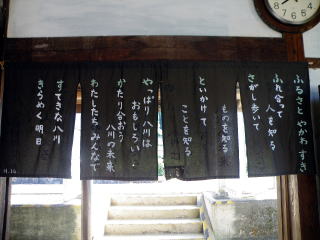 ふるさと やかわ すき
ふれ合って
人を知る
さがし歩いて
ものを知る
といかけて
ことを知る
やっぱり八川は
おもしろい
かたり合おう
八川の未来
わたしたち みんなで
すてきな八川
きらめく明日
H.14